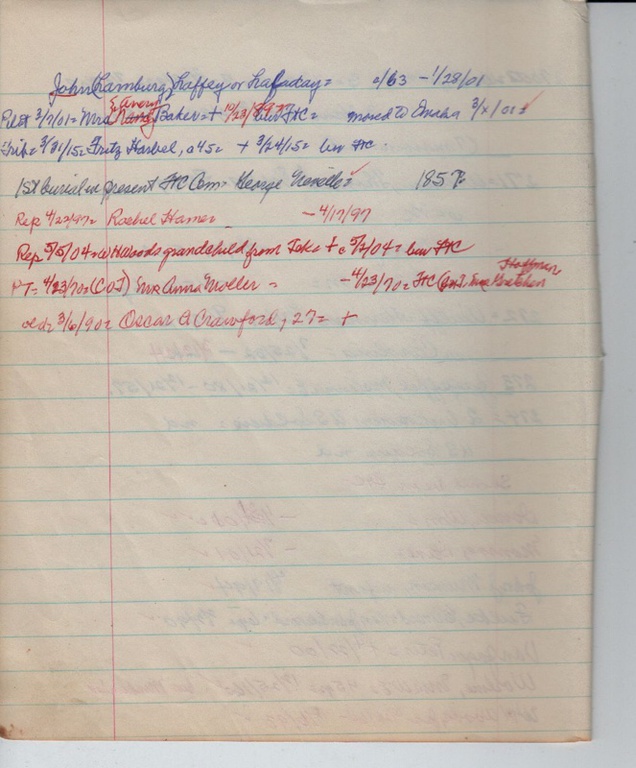 John (Lamburg) Laffey or Lafaday = c/63 - 1/28/01
Pilot 3/7/01 = Mrs Nancy Baker = + 10/23/1897 bur FC = moved to Omaha 3/x/01 =
Trib = 3/31/15 = Fritz Hasbel, a 45 = + 3/24/15 = bur FC =
1st burial in present FC Cem = George Neville = 185
Rep 4/23/97 = Rachel Hamer - 4/17/97
Rep 5/5/04 = W H Woods grandchild from Tek = + c 5/2/04 = bur FC
PT = 4/23/70 = (COT) Mrs Anna Moller = - 4/23/70 = FC Hoffman Gretchen
3/6/90 = Oscar A Crawford, 27 = +